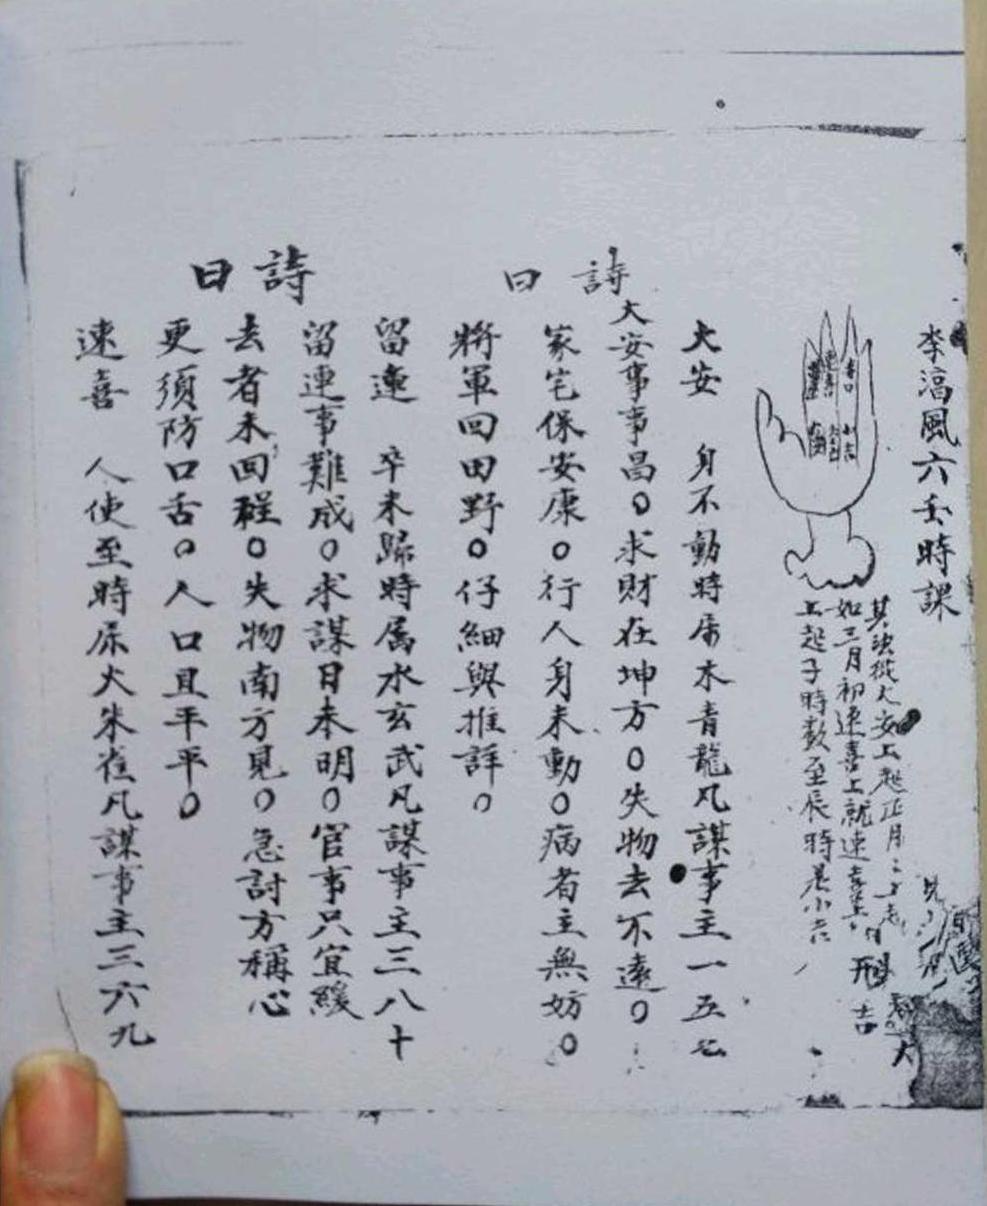 李淳風六壬時課
其法從大安上起正月
如三月初速喜上就速喜上
上起子時数至辰時是小吉
大安　身不動時属木青龍凡謀事主一五七
詩曰
大安事事昌○求財在坤方○失物去不遠○
家宅保安康○行人身未動○病者主無妨○
將軍回田野○仔細與推詳○
留連　卒未歸時属水玄武凡謀事主三八十
詩曰
留連事難成○求謀日未明○官事只宜緩
去者未回程○失物南方見○急討方稱心
更須防口舌○人口且平平○
速喜　人使至時属火朱雀凡謀事主三六九